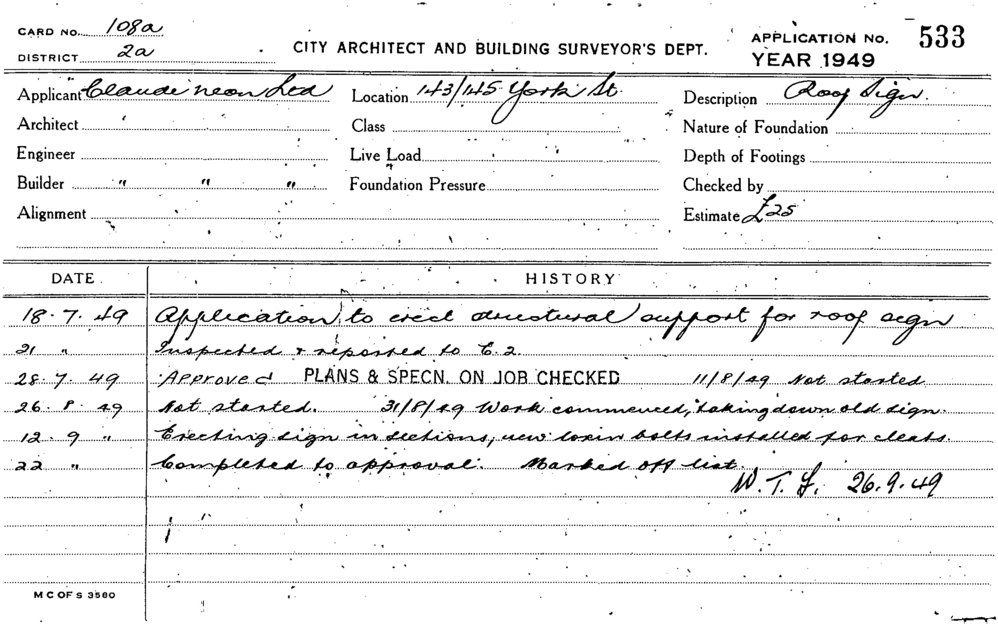 CARD NO. 108a
DISTRICT 2a
CITY ARCHITECT AND BUILDING SURVEYOR'S DEPT.
APPLICATION No. 533
YEAR 1949
Applicant Claude neon Ltd Location 143/145 York St. Description Roof Sign.
Architect Class Nature of Foundation
Engineer Live Load Depth of Footings
Builder " " " Foundation Pressure Checked by
Alignment Estimate £25
DATE HISTORY
18.7.49 Application to erect structural support for roof sign
21 " Inspected & reported to C.2.
28.7.49 Approved PLANS & SPECN. ON JOB CHECKED 11/8/49 Not started
26.8.49 Not started. 31/8/49 Work commenced, taking down old sign.
12.9 " Erecting sign in sections, new bolts installed for cleats.
22 " Completed to approval. Marked off list.
W.T.F. 26.9.49
M C OF S 3580